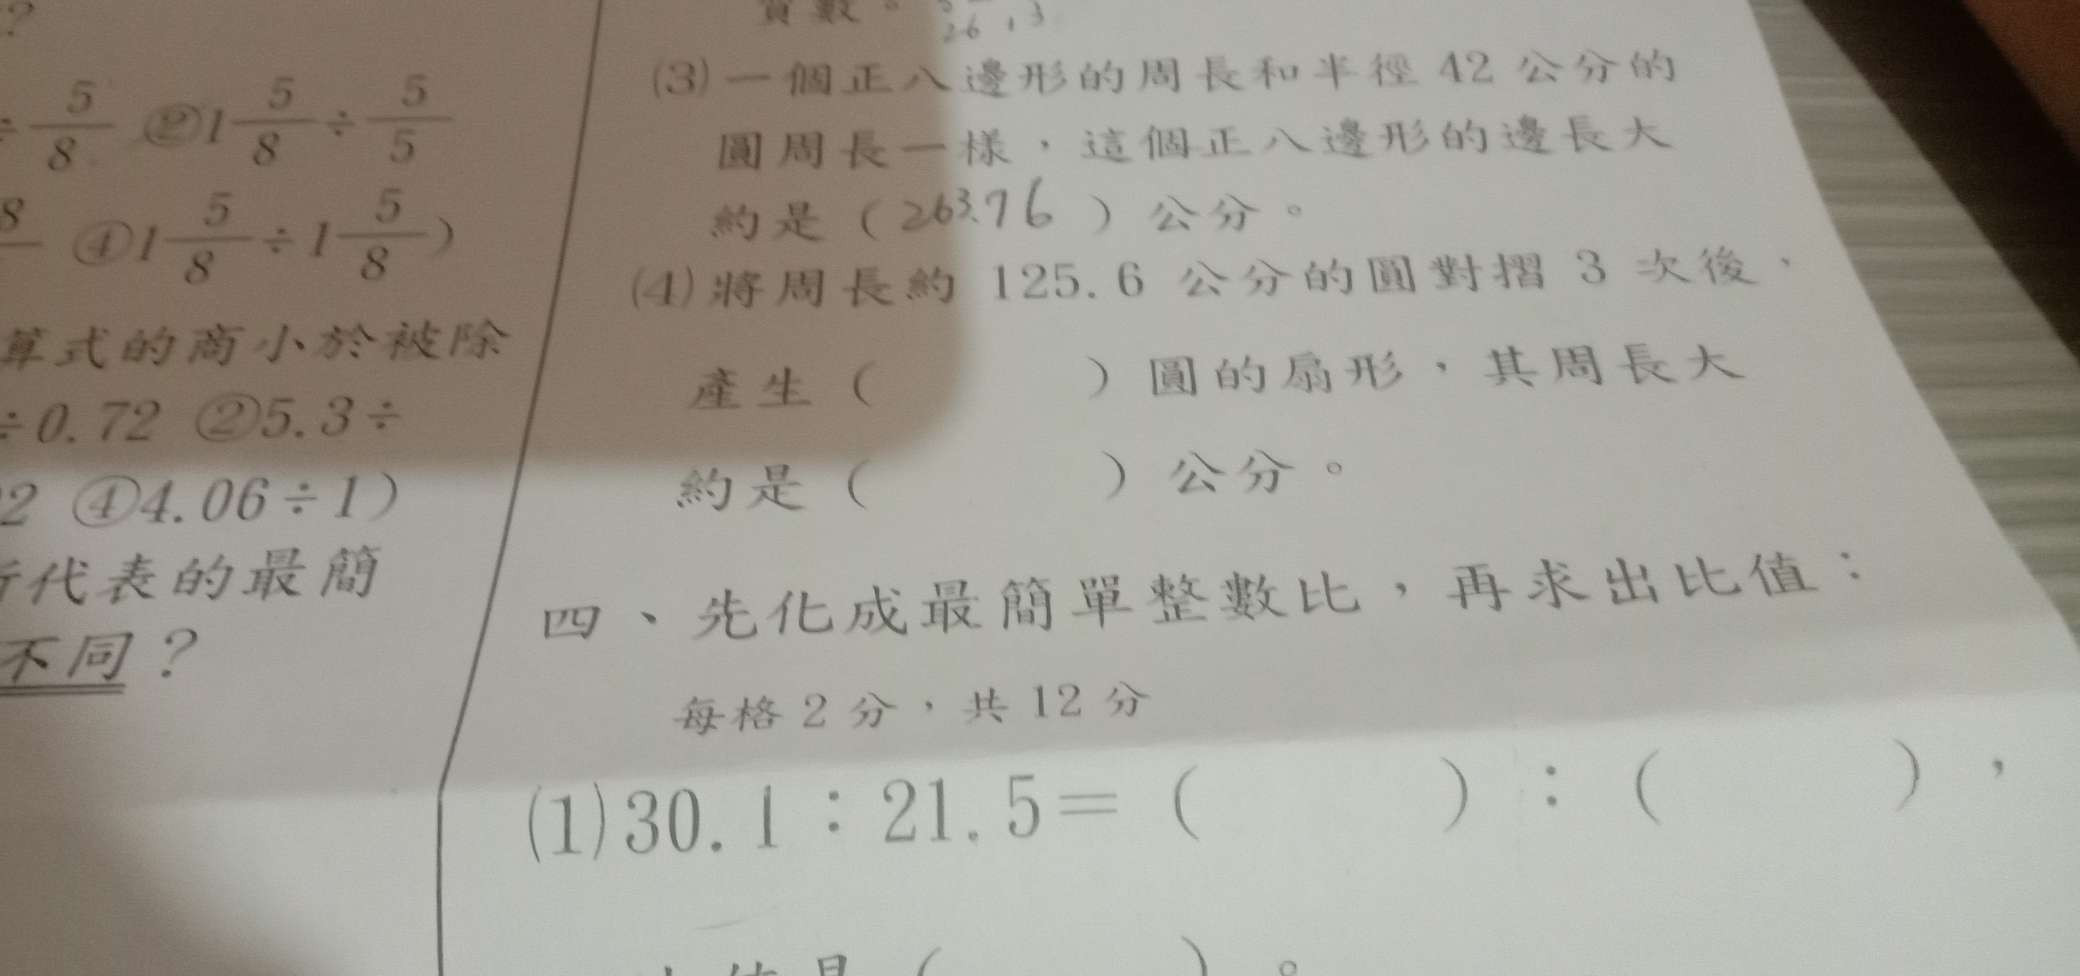 ?
÷5/8 ②1 5/8÷5/5
8 ④1 5/8÷1 5/8)
算式的商小於被除
÷0.72 ②5.3÷
2 ④4.06÷1)
代表的最簡
不同？
數。
26 , 3
(3)一個正八邊形的周長和半徑 42 公分的
圓周長一樣，這個正八邊形的邊長大
約是（263.76）公分。
(4)將周長約 125.6 公分的圓對摺 3 次後，
產生（ ）圓的扇形，其周長大
約是（ ）公分。
四、先化成最簡單整數比，再求出比值：
每格 2 分，共 12 分
(1)30.1：21.5=（ ）：（ ），
（ ）。